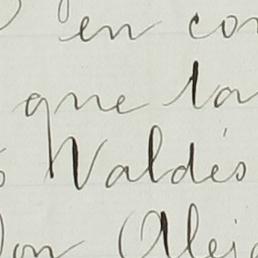 en con
que la
Valdés
Don Alej